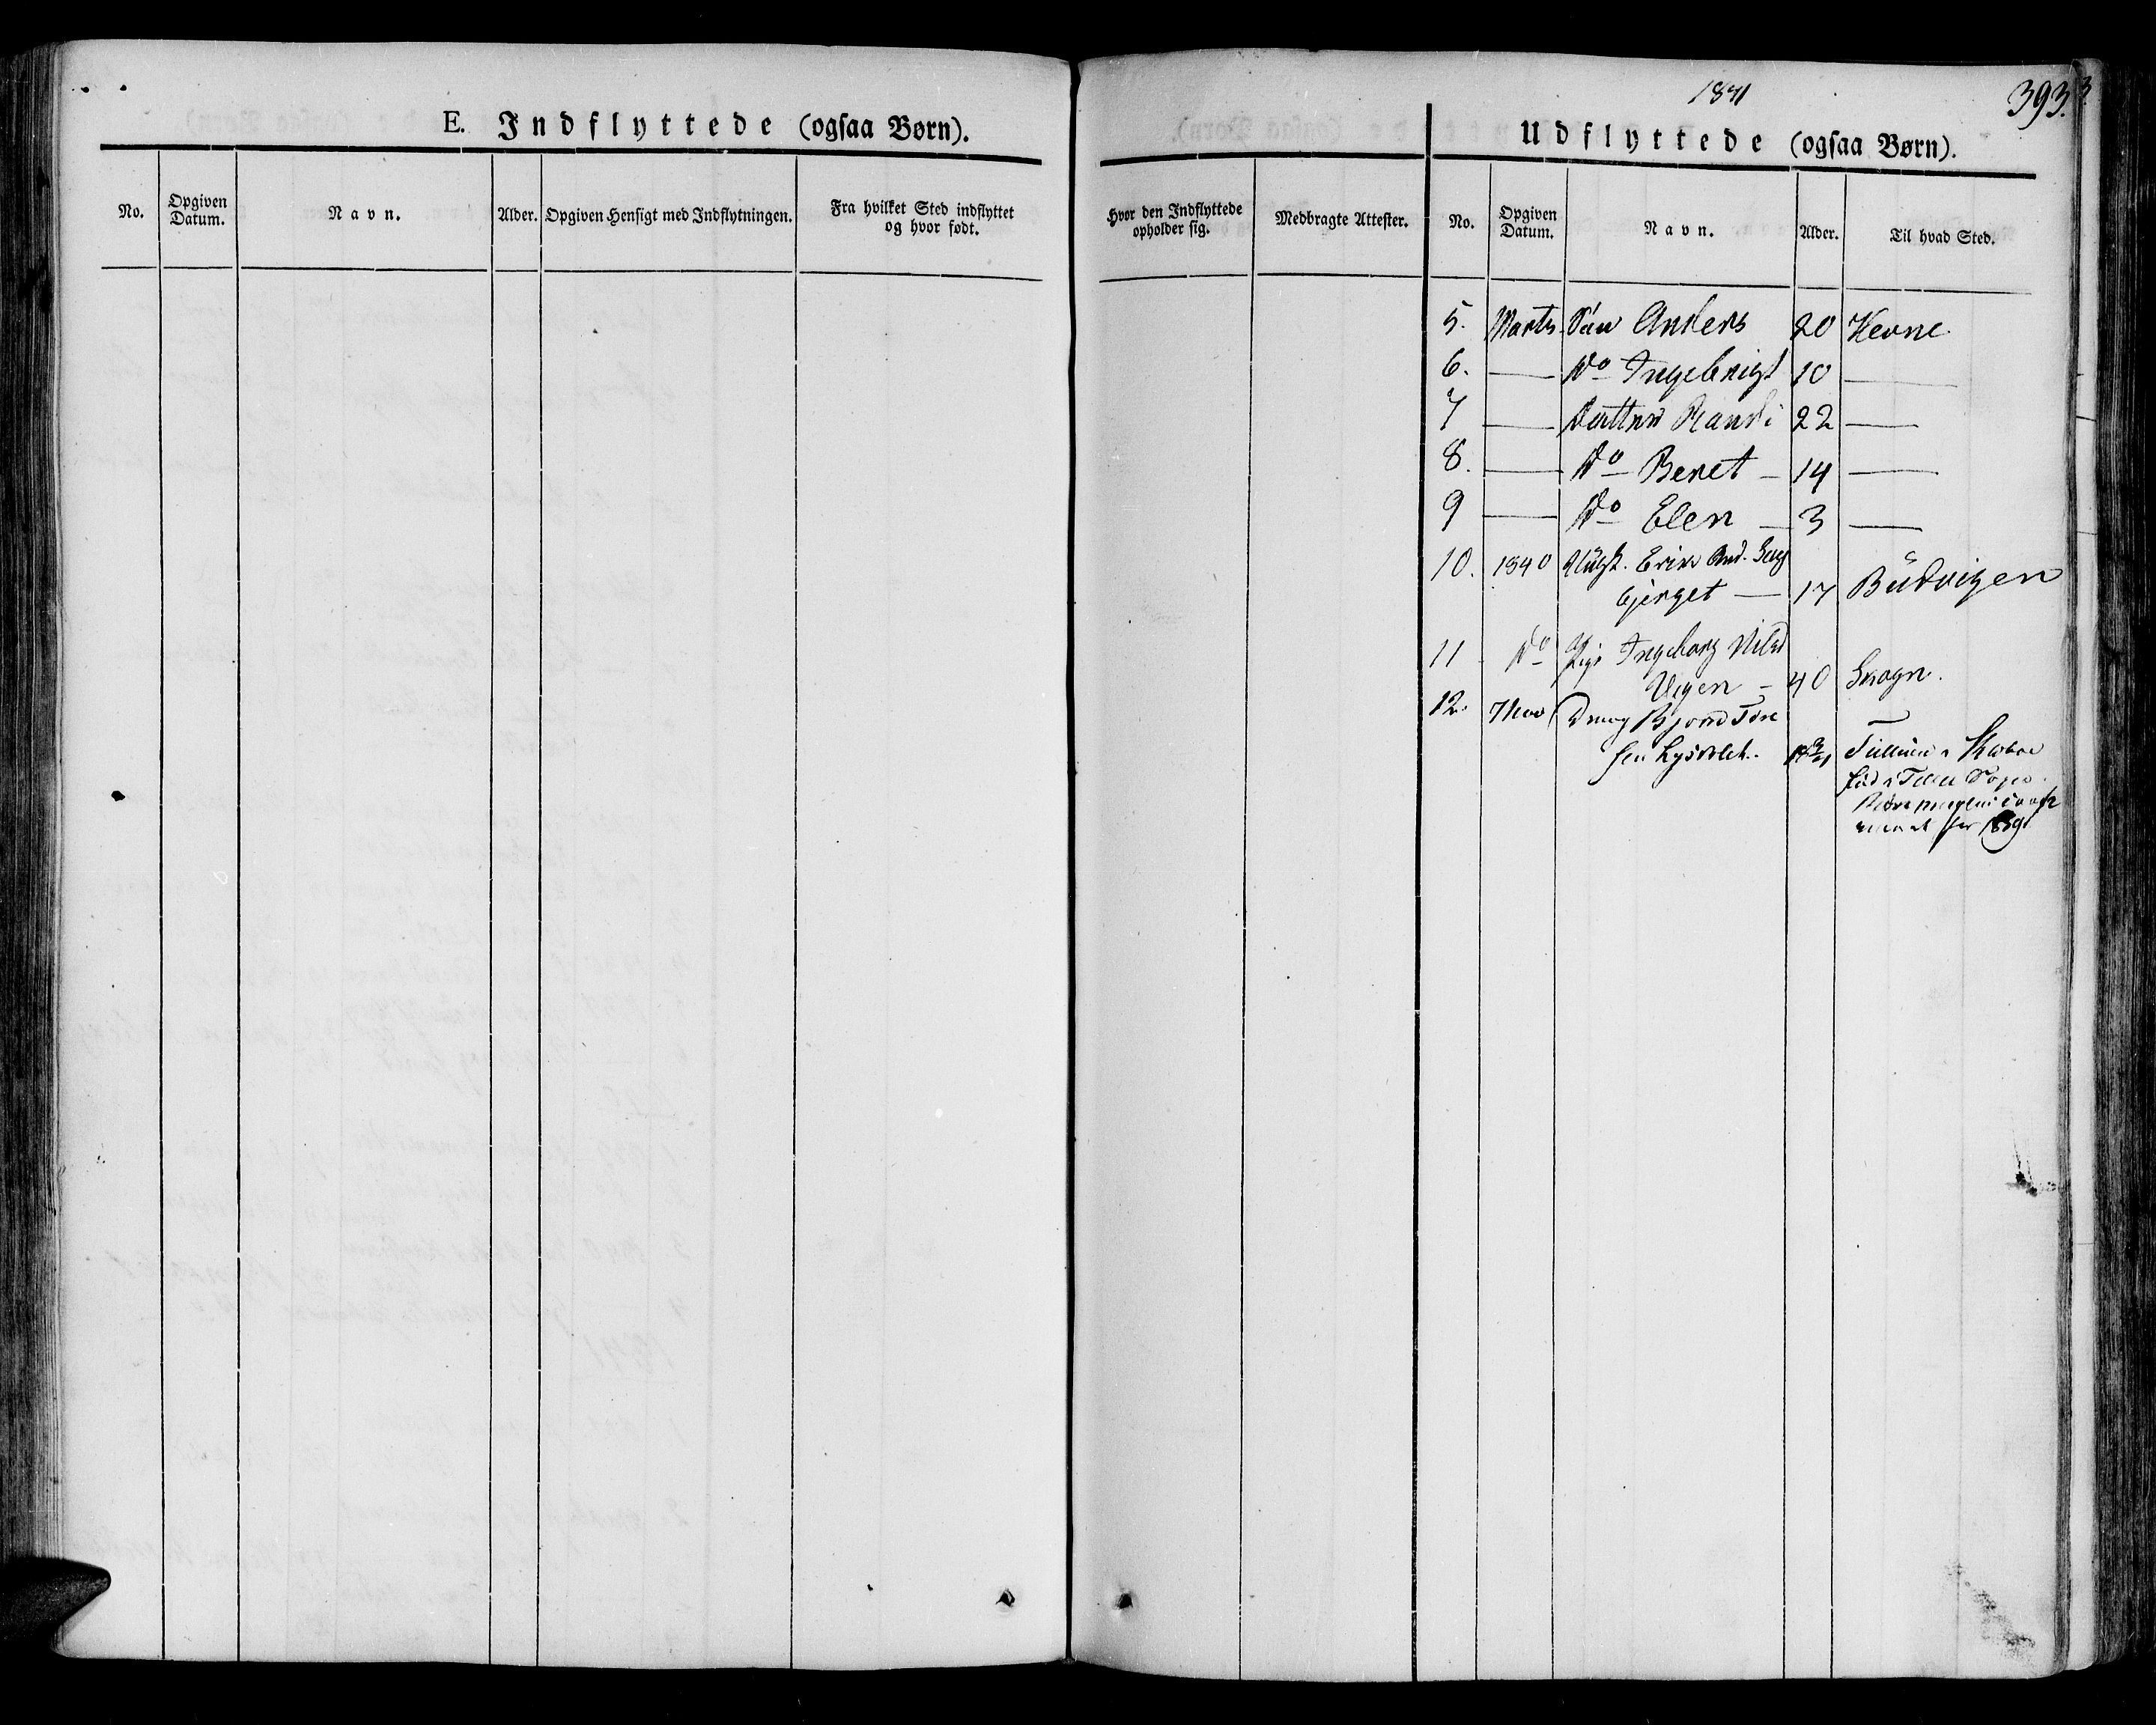 E. Indflyttede (ogsaa Børn).
No.
Opgiven Datum.
Navn.
Alder.
Opgiven Hensigt med Indflytningen.
Fra hvilket Sted indflyttet og hvor født.
1841
393.
Udflyttede (ogsaa Børn).
Hvor den Indflyttede opholder sig.
Medbragte Attester.
No.
Opgiven Datum.
Navn.
Alder.
Til hvad Sted.
5. Marts Søn Anders 20 Hevne
6. — Do Ingebrigt 10 —
7 — Datter Randi 22 —
8. — Do Beret — 14 —
9 — Do Elen — 3 —
10. 1840 Ungk. Erik And.
bjerget — 17 Budvigen
11 Do Pige Ingeborg Nilsd
Vigen — 40 Skogn.
12. 7 Nov Dreng